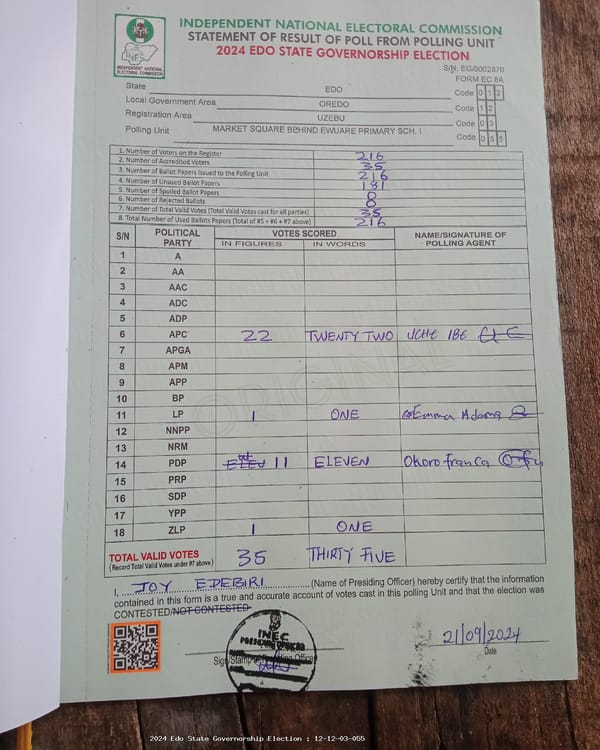 INDEPENDENT NATIONAL ELECTORAL COMMISSION
STATEMENT OF RESULT OF POLL FROM POLLING UNIT
2024 EDO STATE GOVERNORSHIP ELECTION
INEC
INDEPENDENT NATIONAL ELECTORAL COMMISSION
S/N: EG/0002870
FORM EC 8A
State EDO Code 0 1 2
Local Government Area OREDO Code 1 2
Registration Area UZEBU Code 0 3
Polling Unit MARKET SQUARE BEHIND EWUARE PRIMARY SCH. I Code 0 5 5
1. Number of Voters on the Register 216
2. Number of Accredited Voters 35
3. Number of Ballot Papers Issued to the Polling Unit 216
4. Number of Unused Ballot Papers 181
5. Number of Spoiled Ballot Papers
6. Number of Rejected Ballots
7. Number of Total Valid Votes (Total Valid Votes cast for all parties) 35
8. Total Number of Used Ballots Papers (Total of #5 + #6 + #7 above) 216
S/N POLITICAL PARTY VOTES SCORED NAME/SIGNATURE OF POLLING AGENT
IN FIGURES IN WORDS
1 A
2 AA
3 AAC
4 ADC
5 ADP
6 APC 22 TWENTY TWO UCHE IBE
7 APGA
8 APM
9 APP
10 BP
11 LP 1 ONE Emma Adams
12 NNPP
13 NRM
14 PDP 11 ELEVEN Okoro Franca
15 PRP
16 SDP
17 YPP
18 ZLP 1 ONE
TOTAL VALID VOTES 35 THIRTY FIVE
(Record Total Valid Votes under #7 above)
I, JOY EDEBIRI (Name of Presiding Officer) hereby certify that the information
contained in this form is a true and accurate account of votes cast in this polling Unit and that the election was
CONTESTED/NOT CONTESTED
INEC
PRESIDING OFFICER
21/09/2024
Date
ORIGINAL
2024 Edo State Governorship Election : 12-12-03-055